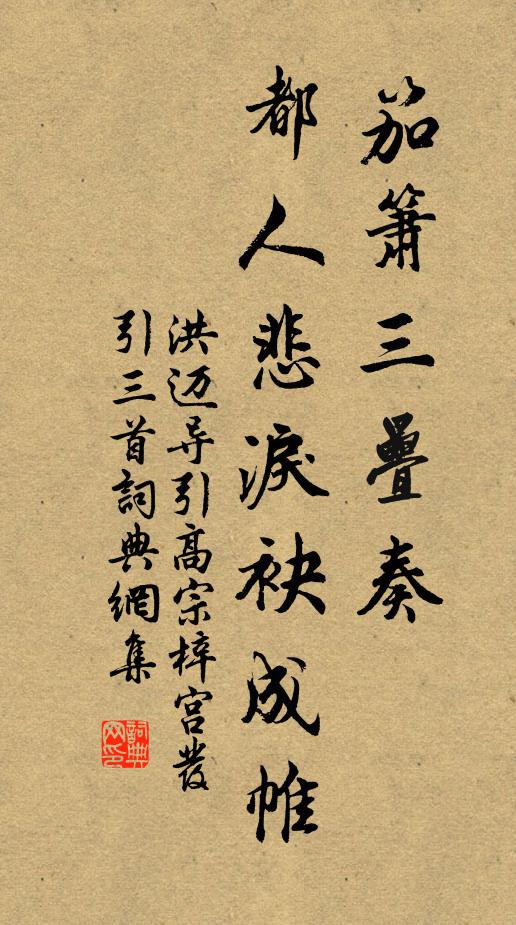 笳簫三疊奏
都人悲淚袂成帷
洪迈导引高宗梓宫發
引三首詞典網集
詞典
网印